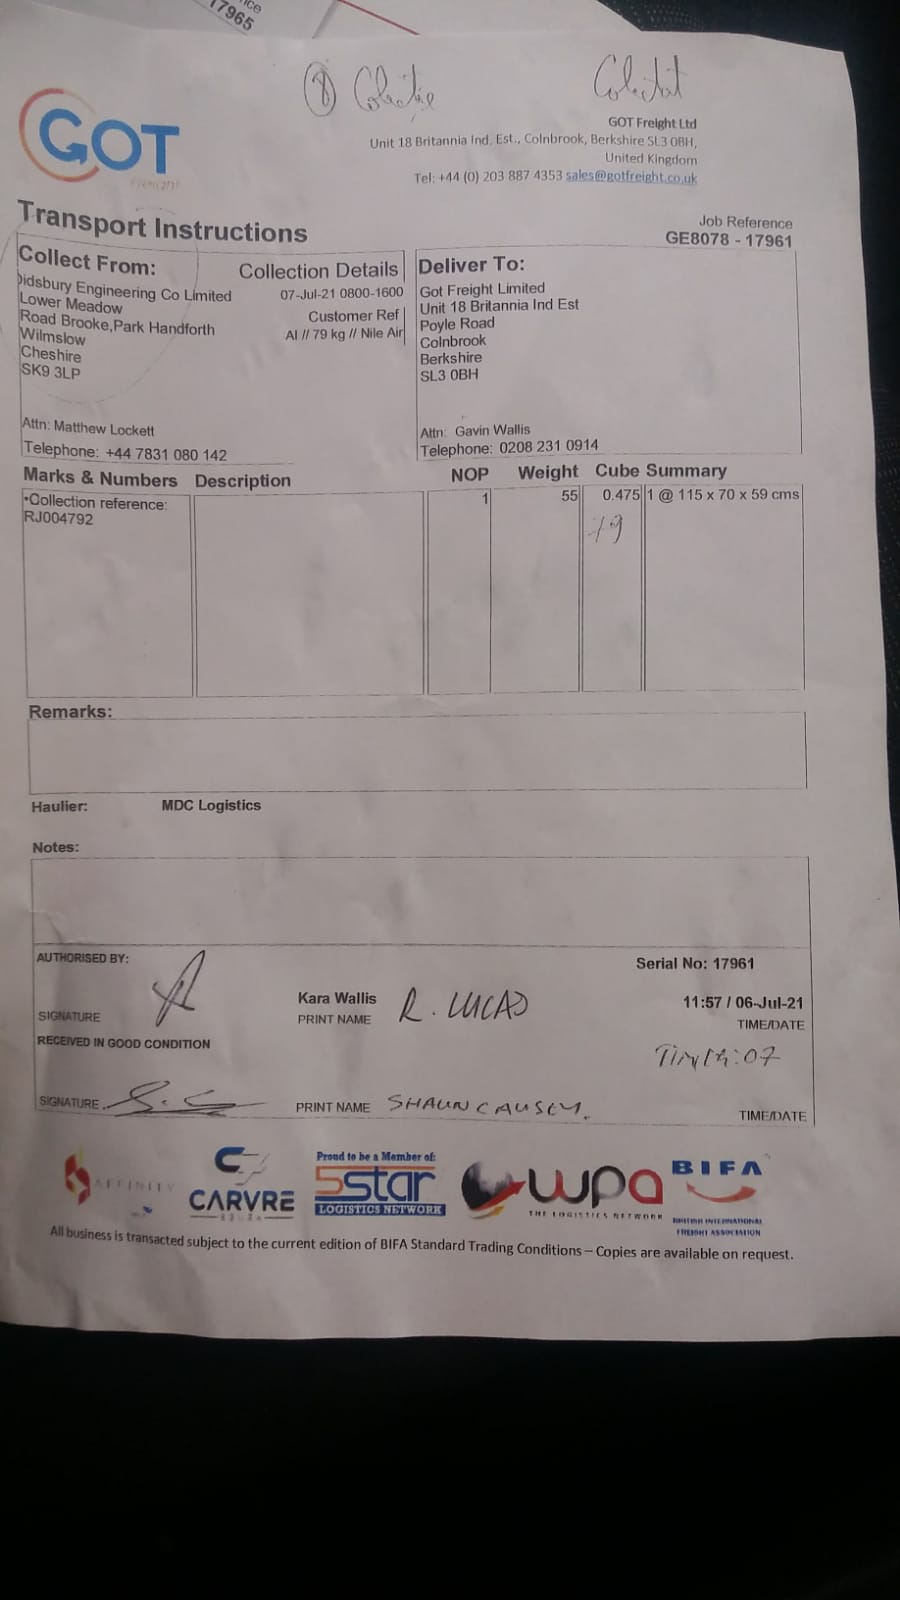 17965
GOT
GOT Freight Ltd
Unit 18 Britannia Ind. Est., Colnbrook, Berkshire SL3 0BH,
United Kingdom
Tel: +44 (0) 203 887 4353 sales@gotfreight.co.uk
Transport Instructions
Job Reference
GE8078 - 17961
Collect From:
Didsbury Engineering Co Limited
Lower Meadow
Road Brooke,Park Handforth
Wilmslow
Cheshire
SK9 3LP
Attn: Matthew Lockett
Telephone: +44 7831 080 142
Collection Details
07-Jul-21 0800-1600
Customer Ref
AI // 79 kg // Nile Air
Deliver To:
Got Freight Limited
Unit 18 Britannia Ind Est
Poyle Road
Colnbrook
Berkshire
SL3 0BH
Attn: Gavin Wallis
Telephone: 0208 231 0914
Marks & Numbers Description NOP Weight Cube Summary
•Collection reference: 1 55 0.475 1 @ 115 x 70 x 59 cms
RJ004792
79
Remarks:
Haulier: MDC Logistics
Notes:
AUTHORISED BY:
Serial No: 17961
Kara Wallis R. LUCAS 11:57 / 06-Jul-21
SIGNATURE PRINT NAME TIME/DATE
RECEIVED IN GOOD CONDITION
SIGNATURE PRINT NAME SHAUN CAUSEY. TIME/DATE
AFFINITY
CARVRE
Proud to be a Member of:
5star
LOGISTICS NETWORK
wpa
THE LOGISTICS NETWORK
BIFA
BRITISH INTERNATIONAL
FREIGHT ASSOCIATION
All business is transacted subject to the current edition of BIFA Standard Trading Conditions – Copies are available on request.